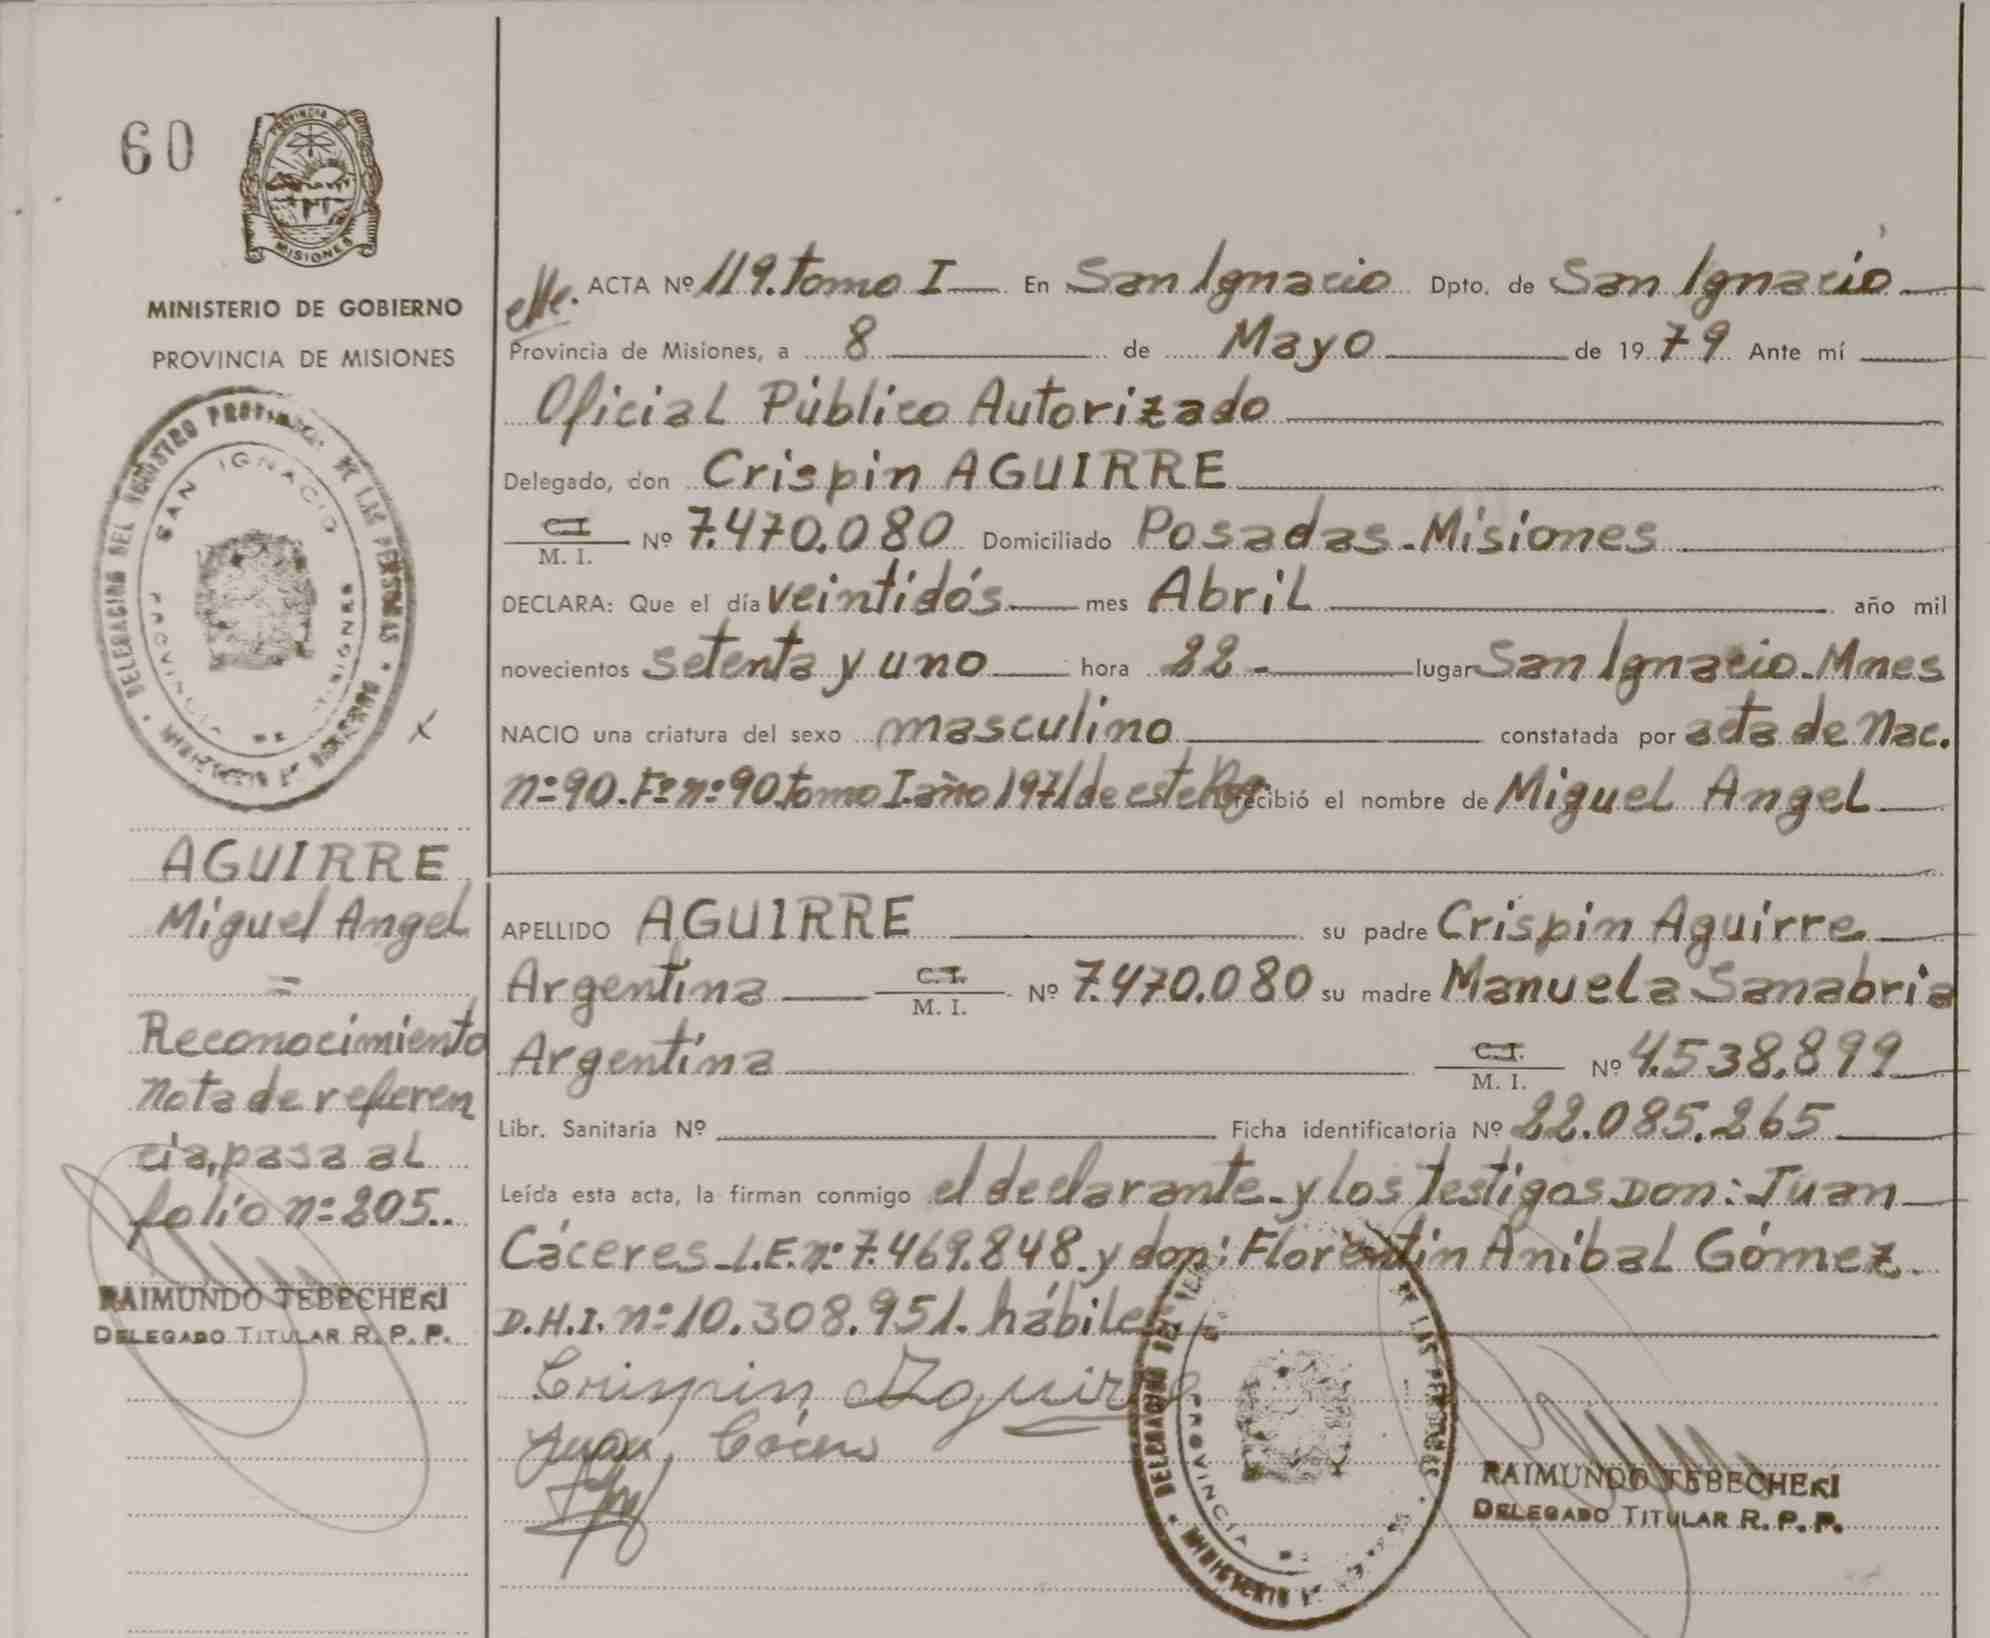 60
PROVINCIA DE
MISIONES
MINISTERIO DE GOBIERNO
PROVINCIA DE MISIONES
DELEGACION DEL REGISTRO PROVINCIAL DE LAS PERSONAS
SAN IGNACIO
PROVINCIA DE MISIONES
AGUIRRE
Miguel Angel
=
Reconocimiento
nota de referen
cia, pasa al
folio nº 205..
RAIMUNDO TEBECHERÍ
DELEGADO TITULAR R. P. P.
ACTA Nº 119. tomo I En San Ignacio Dpto. de San Ignacio
Provincia de Misiones, a 8 de Mayo de 1979 Ante mí
Oficial Público Autorizado
Delegado, don Crispin AGUIRRE
C.I. / M. I. Nº 7.470.080 Domiciliado Posadas - Misiones
DECLARA: Que el día veintidós mes Abril año mil
novecientos setenta y uno hora 22 - lugar San Ignacio - Mnes
NACIO una criatura del sexo masculino constatada por acta de Nac.
nº 90. Fº nº 90. tomo I. año 1971 de este Rg. recibió el nombre de Miguel Angel
APELLIDO AGUIRRE su padre Crispin Aguirre
Argentina C.I. / M. I. Nº 7.470.080 su madre Manuela Sanabria
Argentina C.I. / M. I. Nº 4.538.899
Libr. Sanitaria Nº Ficha identificatoria Nº 22.085.265
Leída esta acta, la firman conmigo el declarante - y los testigos Don: Juan
Cáceres - L.E. nº 7.469.848 - y don: Florentin Anibal Gómez
D.H.I. nº 10.308.951. hábiles
Crispin Aguirre
DELEGACION DEL DE LAS PERSONAS
PROVINCIA
RAIMUNDO TEBECHERÍ
DELEGADO TITULAR R. P. P.